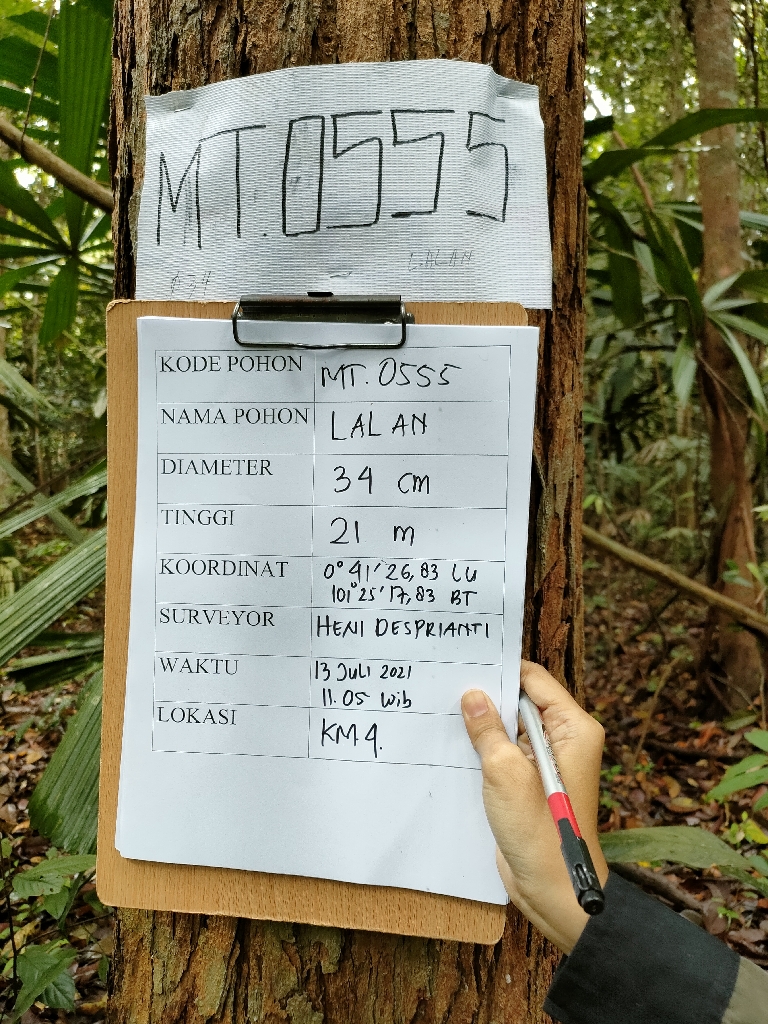 MT.0555
034
LALAN
KODE POHON MT. 0555
NAMA POHON LALAN
DIAMETER 34 cm
TINGGI 21 m
KOORDINAT 0°41'26,83 LU
101°25'17,83 BT
SURVEYOR HENI DESPRIANTI
WAKTU 13 Juli 2021
11.05 Wib
LOKASI KM 4.